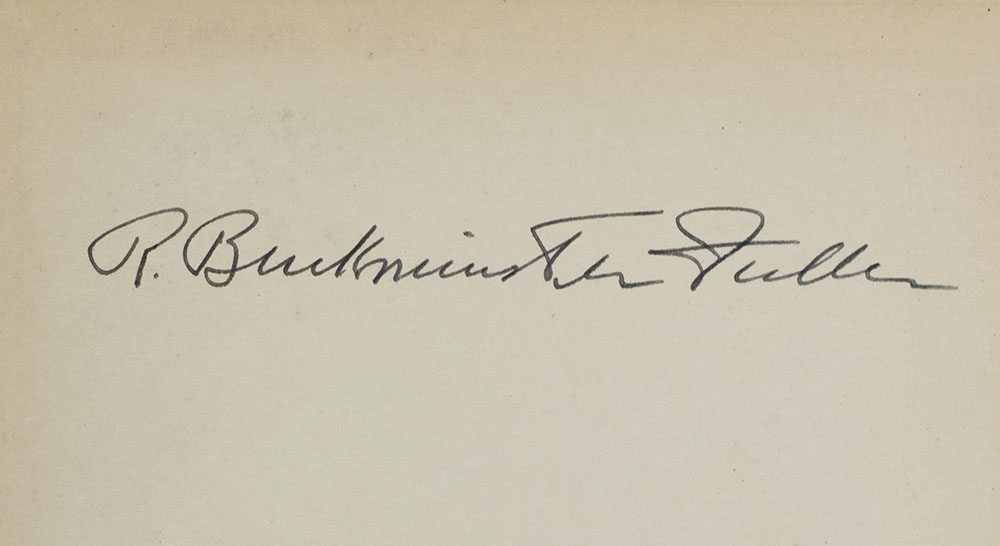 R. Buckminster Fuller